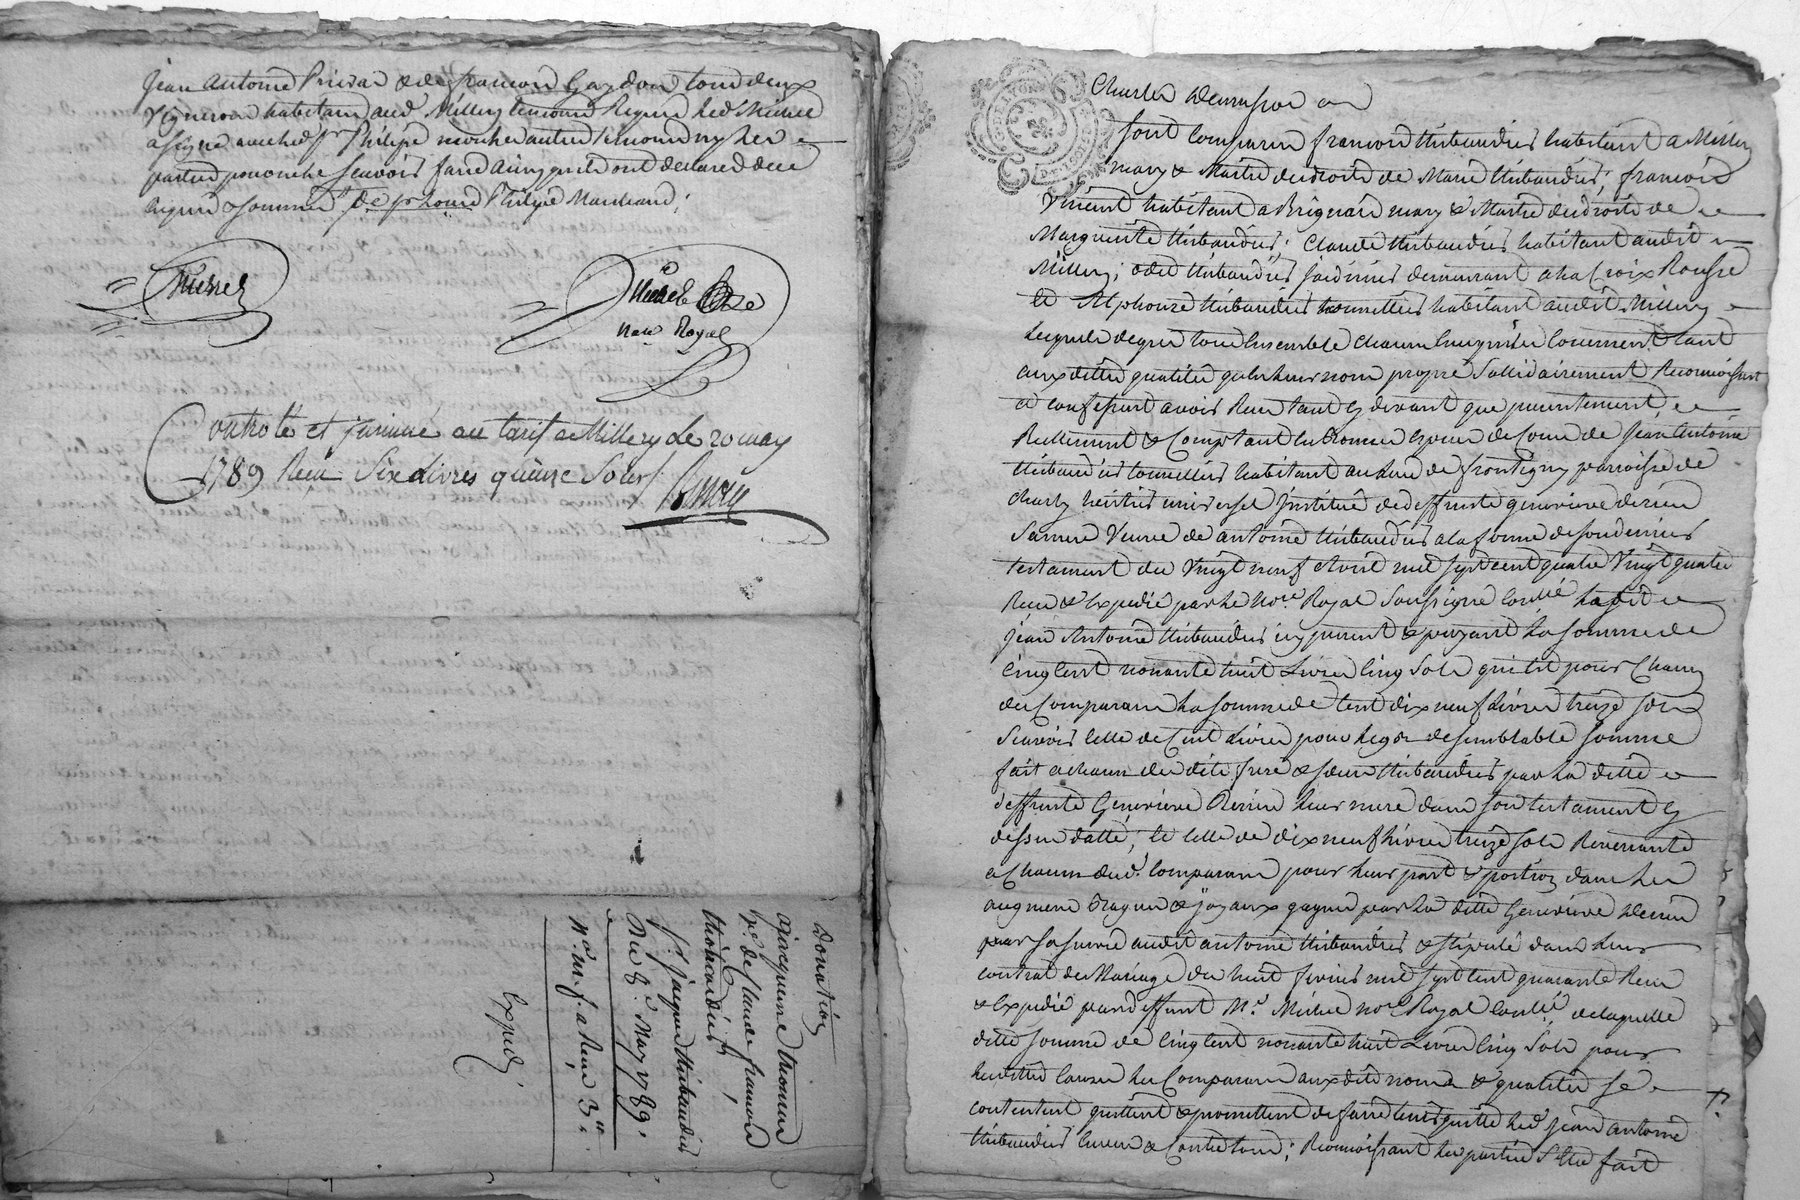 Jean Antoine Privas & de francois Gaydon tous deux
Vignerons habitans aud. Millery temoins Requis led. Michel
a signé avec led. sr Philipe mouche autre temoin ny les
parties pour ne scavoir faire ainsy quils ont declaré de ce
enquis & sommés Philipe Marchand;
Michel
nore Royal
Controllé et insinué au tarif a Millery Le 20 may
1789 Reçu Six livres quinze Sols
Donation
a jacquême thomas
ve de Claude francois
thibaudier,
sr. jacque thibaudier
Du 8e May 1789.
Expéd.
GEN. LYON
DEUX SOLS
sont Comparus francois thibaudier habitant a Millery
mary & Maitre des droits de Marie thibaudier; francois
Vincent habitant a Brignais mary & Maitre des droits de
Marguerite thibaudier; Claude thibaudier habitant audit
Millery; thibaudier jardinier demeurant a la Croix Rousse
et Alphonse thibaudier tonnellier habitant audit Millery
lesquels de gré tous Ensemble chacun Concernant tant
aux dittes qualités qu'en leurs noms propre Sollidairement Reconnoissent
et confessent avoir Reçu tant cy devant que presentement
Reellement & Comptant En bonnes especes de Cours de Jean Antoine
thibaudier tonnellier habitant au lieu de frontigny parroisse de
Charly heritier universel Institué de deffunte genevieve
Sa mere Veuve de antoine thibaudier a la forme de son dernier
testament du Vingt neuf Avril mil sept cent quatre Vingt quatre
Reçu & Expedié par le Nore Royal Soussigné Conllé ledit
jean Antoine thibaudier icy present & payant La somme de
Cinq Cent nonante huit Livres Cinq Sols qui est pour Chacun
des Comparans La somme de Cent dix neuf Livres treize sols
Scavoir Celle de Cent Livres pour Legs de semblable somme
fait a chacun des dits frere & soeur thibaudier par la ditte
deffunte Genevieve leur mere dans son testament cy
dessus datté; et Celle de dix neuf Livres treize sols Revenante
a Chacun desd. Comparans pour leur part & portion dans les
augment Bagues & joyaux gagnés par La ditte Genevieve
par sa survie audit antoine thibaudier & stipulé dans leur
contrat de Mariage du huit fevrier mil sept Cent quarante Reçu
& Expedié par deffunt Me. Michel nore Royal Conllé, de laquelle
ditte somme de Cinq Cent nonante huit Livres Cinq Sols pour
les dittes Causes les Comparans aux dits noms & qualités se
contentent quittent & promettent de faire tenir quitte led. jean antoine
thibaudier Envers & Contre tous; Reconnoissant les parties fait